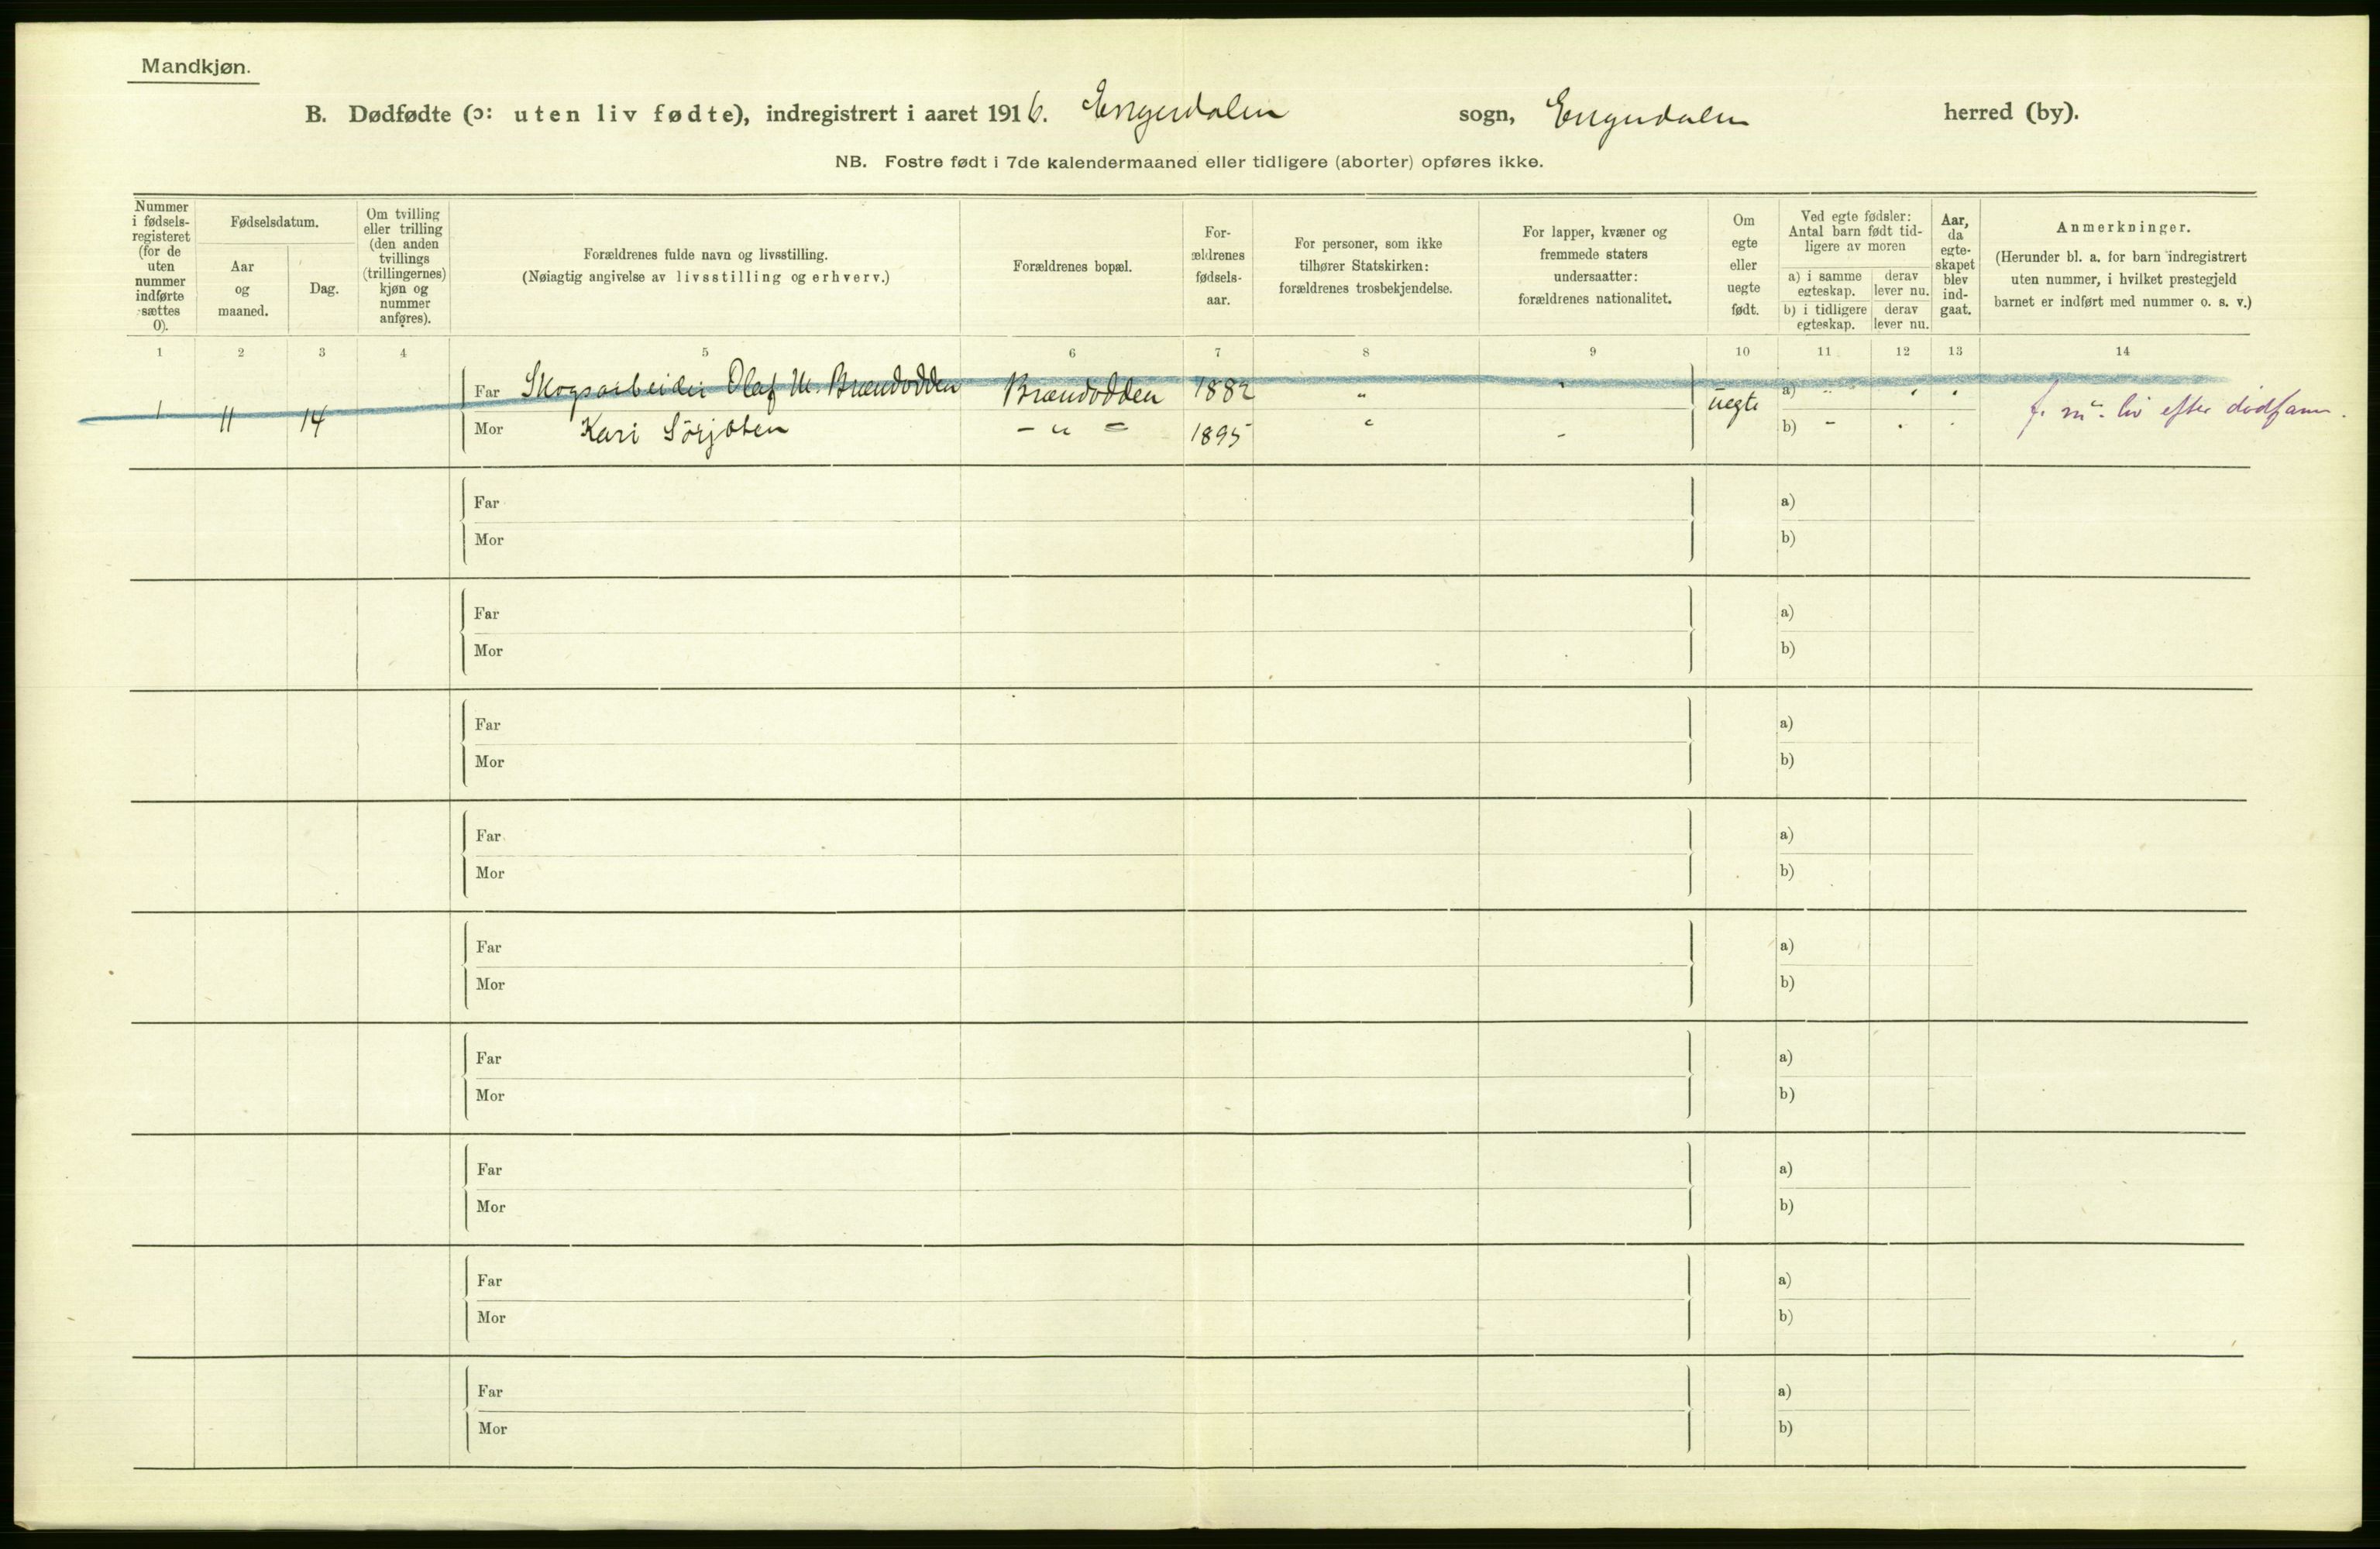 Mandkjøn.
B. Dødfødte (ɔ: uten liv fødte), indregistrert i aaret 1916. Engerdalen sogn, Engerdalen herred (by).
NB. Fostre født i 7de kalendermaaned eller tidligere (aborter) opføres ikke.
Nummer
i fødsels-
registeret
(for de
uten
nummer
indførte
sættes
0).
Fødselsdatum.
Aar
og
maaned.
Dag.
Om tvilling
eller trilling
(den anden
tvillings
(trillingernes)
kjøn og
nummer
anføres).
Forældrenes fulde navn og livsstilling.
(Nøiagtig angivelse av livsstilling og erhverv.)
Forældrenes bopæl.
For-
ældrenes
fødsels-
aar.
For personer, som ikke
tilhører Statskirken:
forældrenes trosbekjendelse.
For lapper, kvæner og
fremmede staters
undersaatter:
forældrenes nationalitet.
Om
egte
eller
uegte
født.
Ved egte fødsler:
Antal barn født tid-
ligere av moren
a) i samme
egteskap.
derav
lever nu.
b) i tidligere
egteskap.
derav
lever nu.
Aar,
da
egte-
skapet
blev
ind-
gaat.
Anmerkninger.
(Herunder bl. a. for barn indregistrert
uten nummer, i hvilket prestegjeld
barnet er indført med nummer o. s. v.)
1 2 3 4 5 6 7 8 9 10 11 12 13 14
1 11 14
Far Skogsarbeider Olaf M. Brændodden Brændodden 1882 " " uegte a) " " "
f. m. liv efter dødfanm.
Mor Kari Sörjoten - " - 1895 " - b) - " "
Far a)
Mor b)
Far a)
Mor b)
Far a)
Mor b)
Far a)
Mor b)
Far a)
Mor b)
Far a)
Mor b)
Far a)
Mor b)
Far a)
Mor b)
Far a)
Mor b)